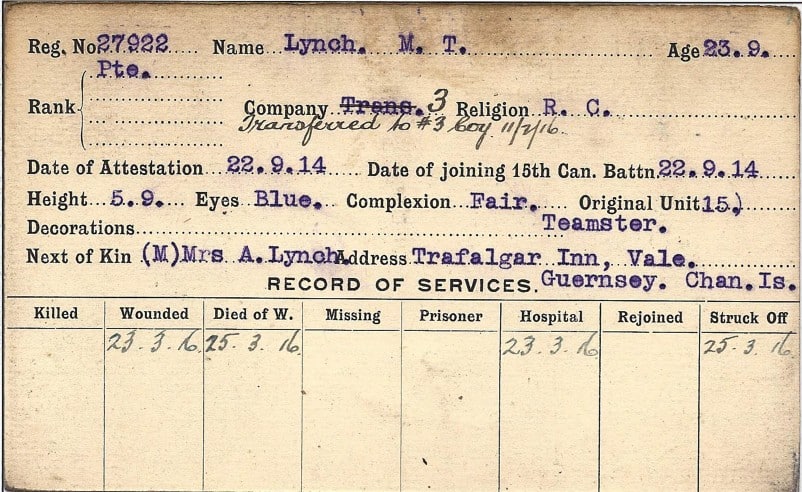 Reg. No 27922 Name Lynch. M. T. Age 23.9.
Pte.
Rank Company Trans. 3 Religion R. C.
Transferred to #3 Coy 11/2/16.
Date of Attestation 22.9.14 Date of joining 15th Can. Battn. 22.9.14
Height 5.9. Eyes Blue. Complexion Fair. Original Unit 15.)
Decorations Teamster.
Next of Kin (M)Mrs A. Lynch. Address Trafalgar Inn, Vale.
RECORD OF SERVICES. Guernsey. Chan. Is.
Killed Wounded Died of W. Missing Prisoner Hospital Rejoined Struck Off
23.3.16 25.3.16 23.3.16 25.3.16